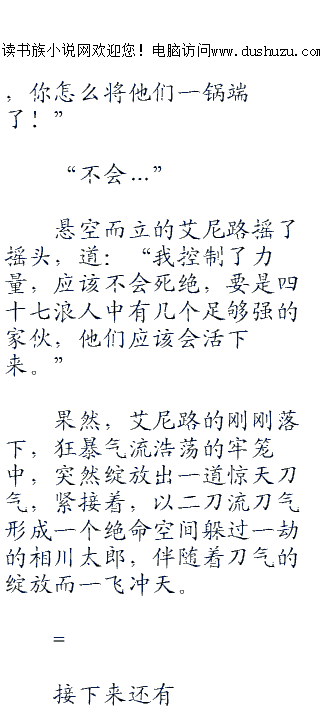 读书族小说网欢迎您！电脑访问www.dushuzu.com
，你怎么将他们一锅端
了！”
“不会…”
悬空而立的艾尼路摇了
摇头，道：“我控制了力
量，应该不会死绝，要是四
十七浪人中有几个足够强的
家伙，他们应该会活下
来。”
果然，艾尼路的刚刚落
下，狂暴气流浩荡的牢笼
中，突然绽放出一道惊天刀
气，紧接着，以二刀流刀气
形成一个绝命空间躲过一劫
的相川太郎，伴随着刀气的
绽放而一飞冲天。
=
接下来还有